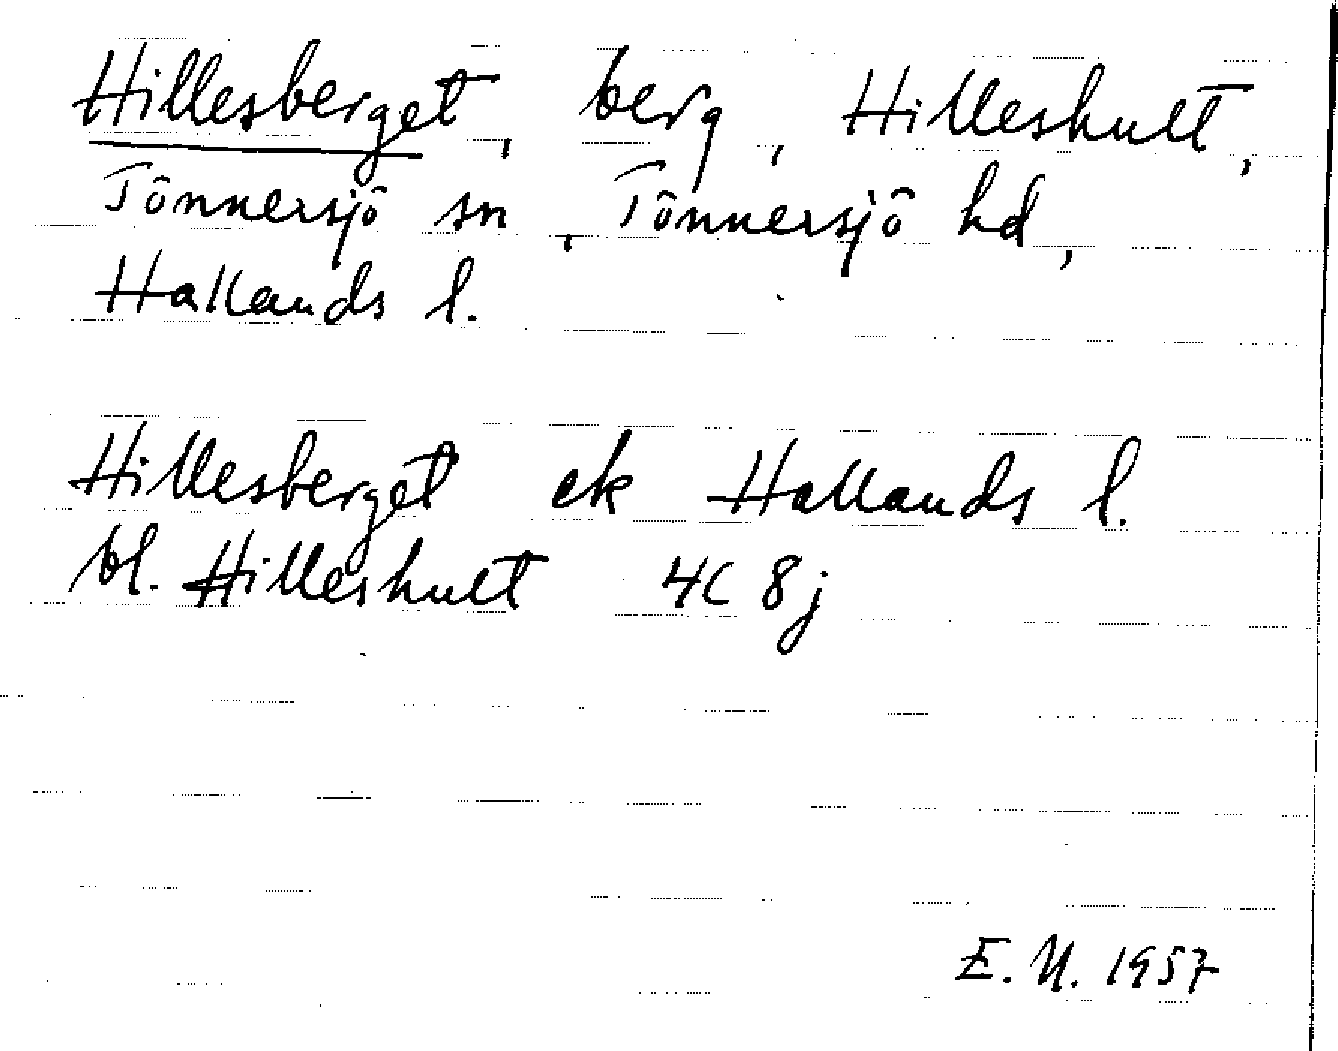 Hillesberget, berg, Hilleshult,
Tönnersjö sn, Tönnersjö hd,
Hallands l.
Hillesberget ek Hallands l.
bl. Hilleshult 4C 8j
E. N. 1957